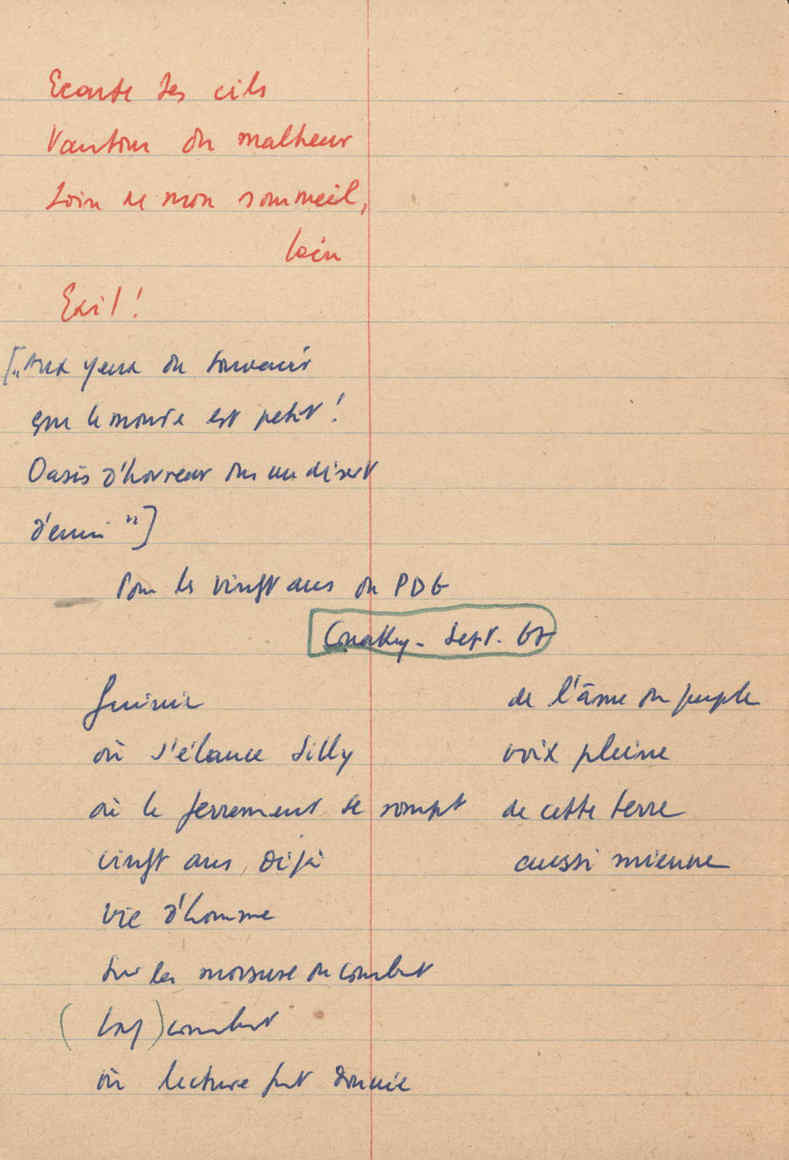 Ecarte tes cils
Vautour du malheur
Loin de mon sommeil,
loin
Exil !
["Aux yeux du souvenir
que le monde est petit !
Oasis d'horreur dans un désert
d'ennui"]
Pour les vingt ans du PDG
Conakry - Sept. 67
Guinée
où s'élance Silly
où le ferrement se rompt
vingt ans, déjà
vie d'homme
sur les morsure du combat
( ) combat
où lecture fut donnée
de l'âme du peuple
voix pleine
de cette terre
aussi mienne